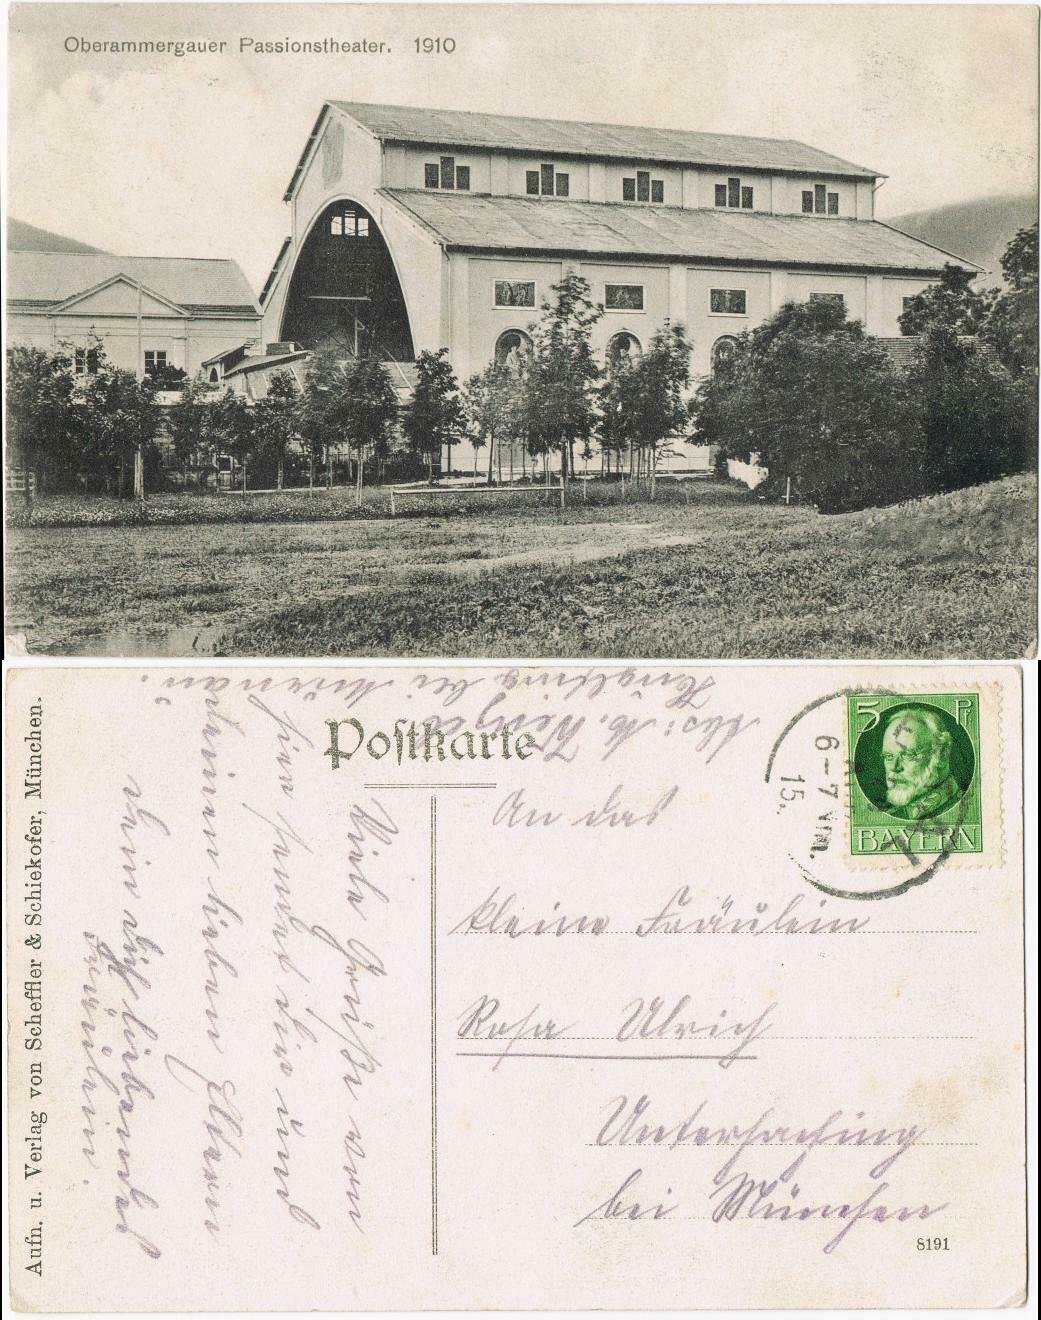 Oberammergauer Passionstheater. 1910
Postkarte
5 Pf
BAYERN
6–7 Vm.
15.
An das
kleine Fräulein
Rosa Ulrich
Unterhaching
bei München
8191
Viele Grüße von
hier sendet dir und
deinen lieben Eltern
dein dich liebendes
Fräulein.
bei Murnau.
Aufn. u. Verlag von Scheffler & Schiekofer, München.